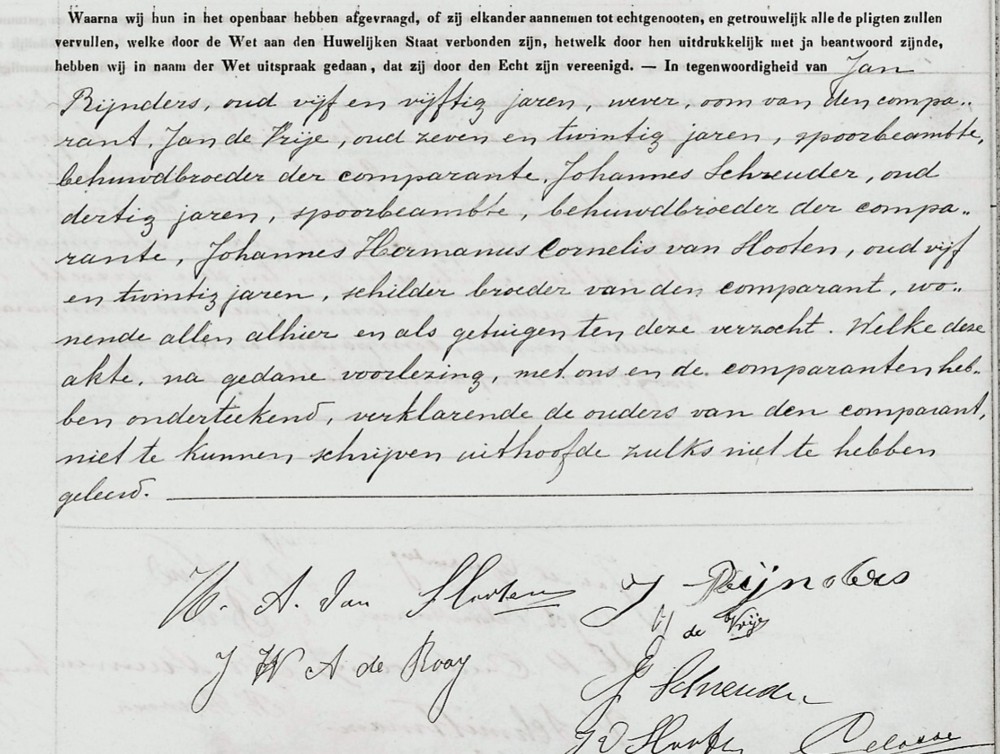 Waarna wij hun in het openbaar hebben afgevraagd, of zij elkander aannemen tot echtgenooten, en getrouwelijk alle de pligten zullen
vervullen, welke door de Wet aan den Huwelijken Staat verbonden zijn, hetwelk door hen uitdrukkelijk met ja beantwoord zijnde,
hebben wij in naam der Wet uitspraak gedaan, dat zij door den Echt zijn vereenigd. — In tegenwoordigheid van Jan
Rijnders, oud vijf en vijftig jaren, wever, oom van den compa..
rant, Jan de Vrije, oud zeven en twintig jaren, spoorbeambte,
behuwdbroeder der comparante, Johannes Schreuder, oud
dertig jaren, spoorbeambte, behuwdbroeder der compa..
rante, Johannes Hermanus Cornelis van Hooten, oud vijf
en twintig jaren, schilder broeder van den comparant, wo..
nende allen alhier en als getuigen ten deze verzocht. Welke deze
akte, na gedane voorlezing, met ons en de comparanten heb-
ben onderteekend, verklarende de ouders van den comparant,
niet te kunnen schrijven uithoofde zulks niet te hebben
geleerd.
H. A. van Hooten J Reijnders
de Vrije
J W A de Rooy
J Schreuder
J V Hooten